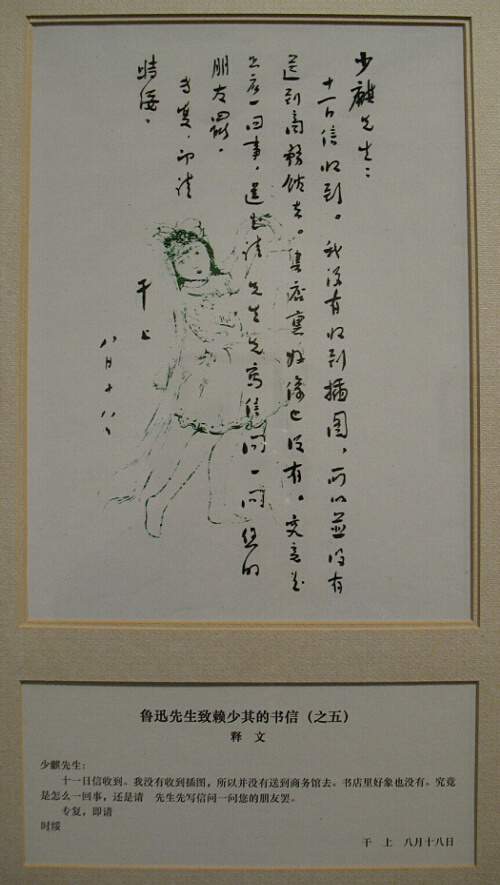 少麒先生：
十一日信收到。我没有收到插圖，所以並没有
送到商務馆去。書店裏好像也没有。究竟是
怎麽一回事，還是请 先生先寫信问一问您的
朋友罷。
专复，即请
時綏。
干 上
八月十八日
鲁迅先生致赖少其的书信（之五）
释 文
少麒先生：
十一日信收到。我没有收到插图，所以并没有送到商务馆去。书店里好象也没有。究竟
是怎么一回事，还是请 先生先写信问一问您的朋友罢。
专复，即请
时绥
干 上 八月十八日